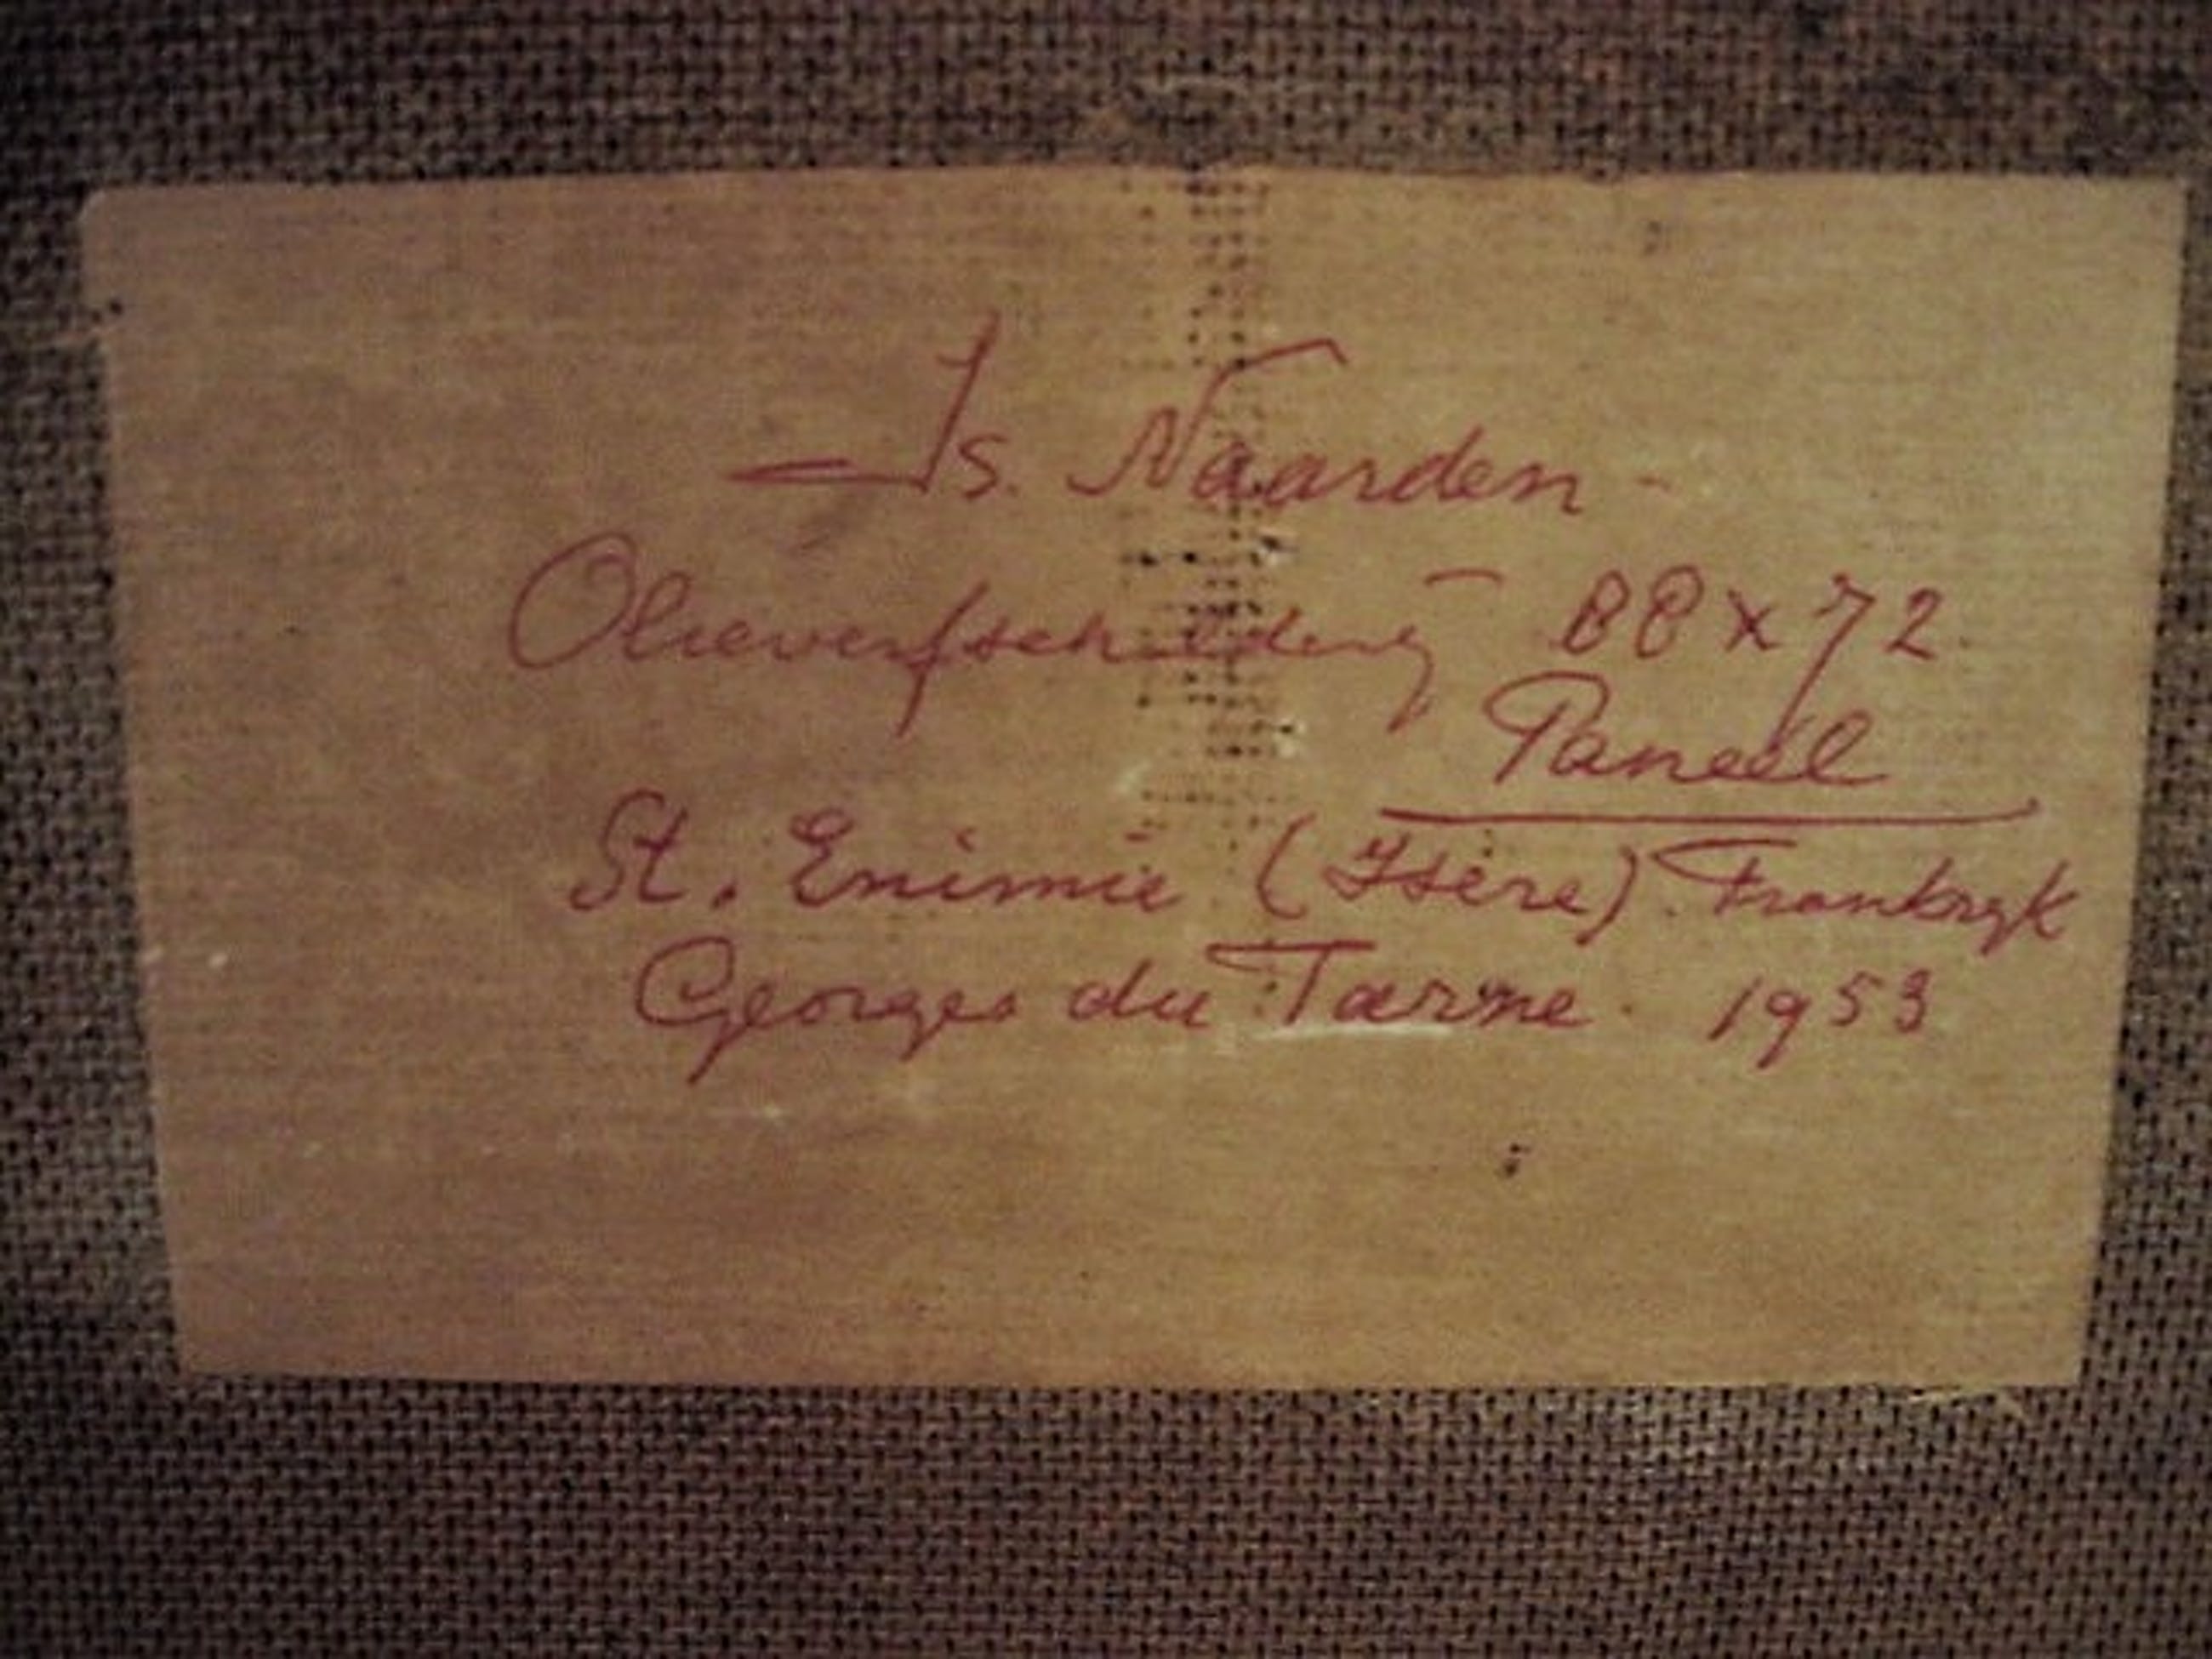 Is. Naarden -
Olieverfschildery - 88 x 72
Paneel
St. Enimie (Isère). Frankryk
Georges du Tarne. 1953